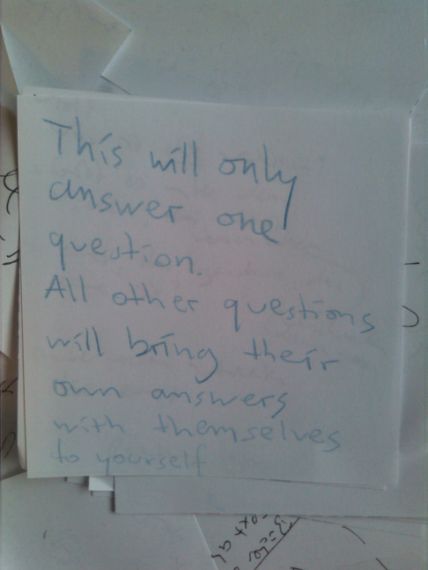 This will only
answer one
question.
All other questions
will bring their
own answers
with themselves
to yourself